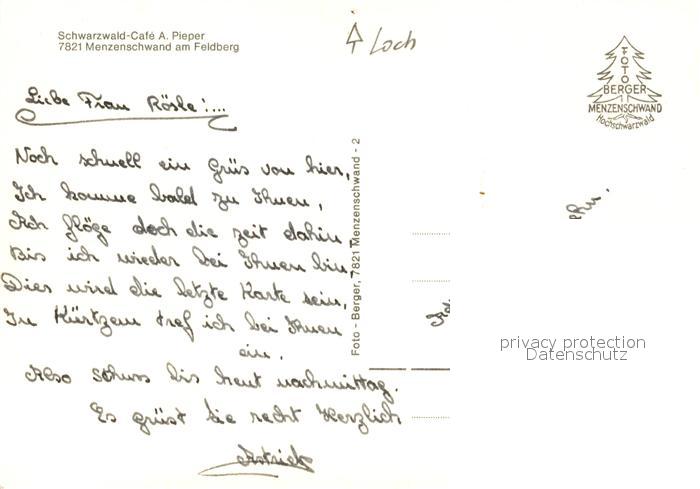 Schwarzwald-Café A. Pieper
7821 Menzenschwand am Feldberg
Loch
FOTO
BERGER
MENZENSCHWAND
Hochschwarzwald
Liebe Frau Rösle!...
Noch schnell ein Grüs von hier,
Ich komme bald zu Ihnen,
Ach flöge doch die zeit dahin,
Bis ich wieder bei Ihnen bin,
Dies wird die letzte Karte sein.
In Kürtzem tref ich bei Ihnen
ein.
Also schuss bis heut nachmittag.
Es grüst Sie recht Herzlich
Foto - Berger, 7821 Menzenschwand - 2
privacy protection
Datenschutz